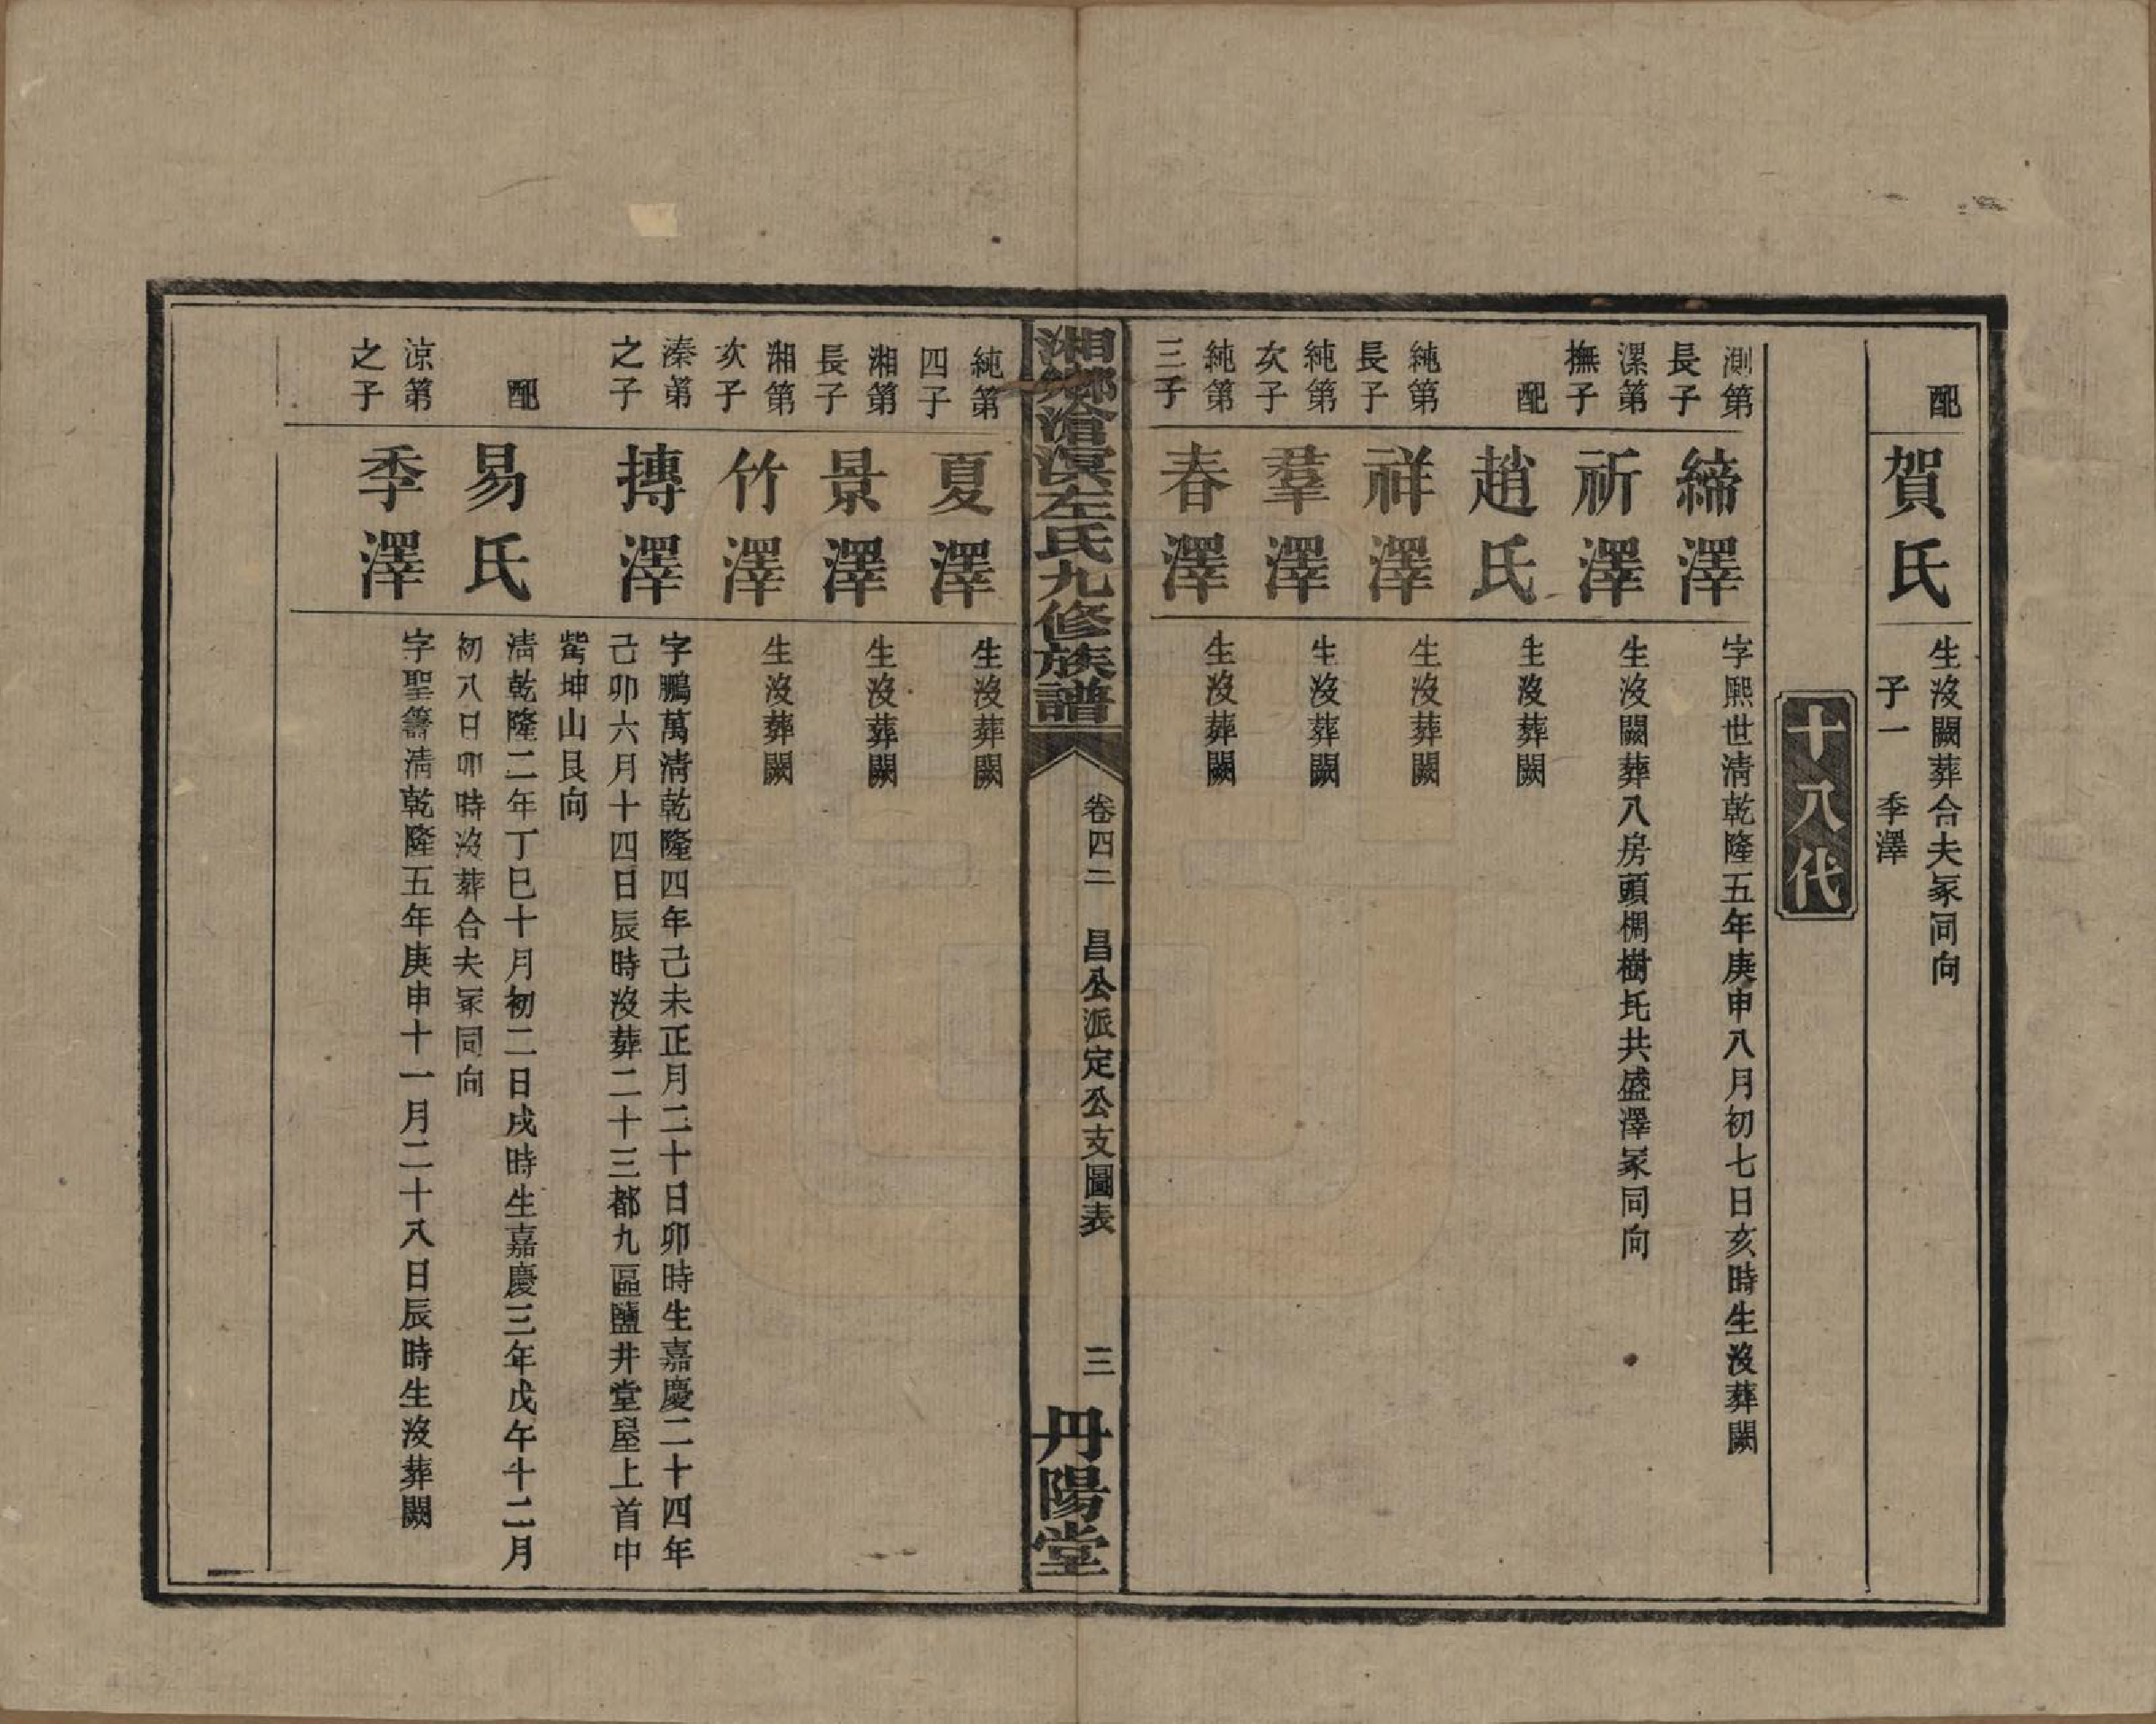 配
賀氏
生沒闕葬合夫冢同向
子一　季澤
十八代
測第
長子
締澤
字熙世清乾隆五年庚申八月初七日亥時生沒葬闕
漯第
撫子
祈澤
生沒闕葬八房頭椆樹圫共盛澤冢同向
配
趙氏
生沒葬闕
純第
長子
祥澤
生沒葬闕
純第
次子
羣澤
生沒葬闕
純第
三子
春澤
生沒葬闕
湘鄉滄溟左氏九修族譜
卷四二　昌公派定公支圖表　三
丹陽堂
純第
四子
夏澤
生沒葬闕
湘第
長子
景澤
生沒葬闕
湘第
次子
竹澤
生沒葬闕
溱第
之子
摶澤
字鵬萬清乾隆四年己未正月二十日卯時生嘉慶二十四年
己卯六月十四日辰時沒葬二十三都九區鹽井堂屋上首中
坤山艮向
配
易氏
清乾隆二年丁巳十月初二日戌時生嘉慶三年戊午十二月
初八日卯時沒葬合夫冢同向
涼第
之子
季澤
字聖籌清乾隆五年庚申十一月二十八日辰時生沒葬闕